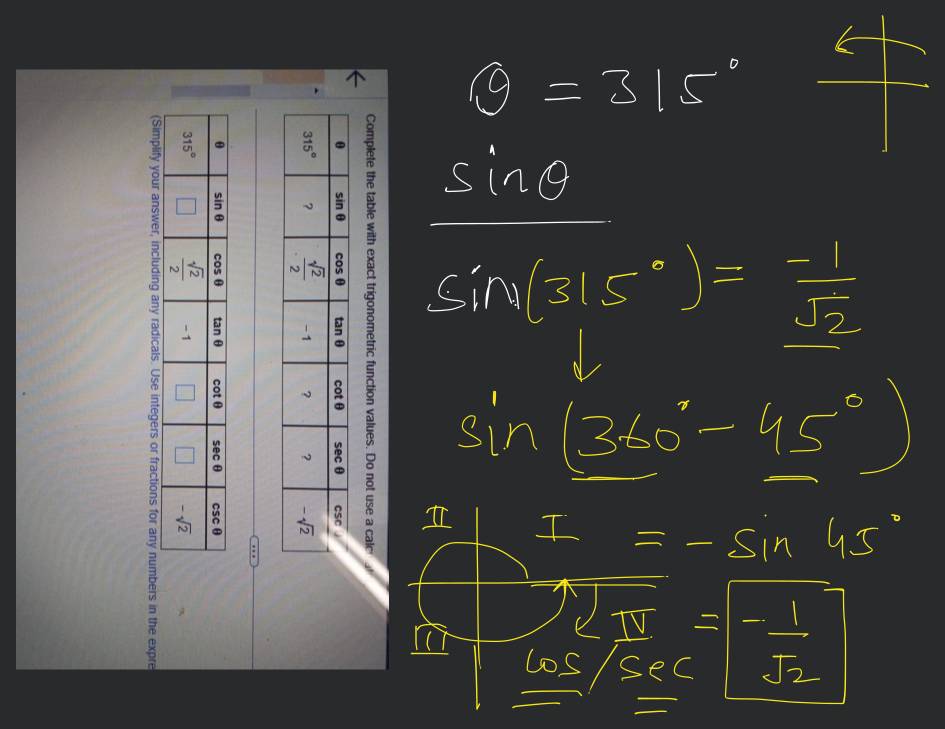 Complete the table with exact trigonometric function values. Do not use a
θ sin θ cos θ tan θ cot θ sec θ csc
315° ? √2/2 -1 ? ? -√2
...
θ sin θ cos θ tan θ cot θ sec θ csc θ
315° √2/2 -1 -√2
(Simplify your answer, including any radicals. Use integers or fractions for any numbers in the expre
θ = 315°
sinθ
sin(315°) = -1/√2
sin(360° - 45°)
II I = - sin 45°
III IV = -1/√2
cos/sec